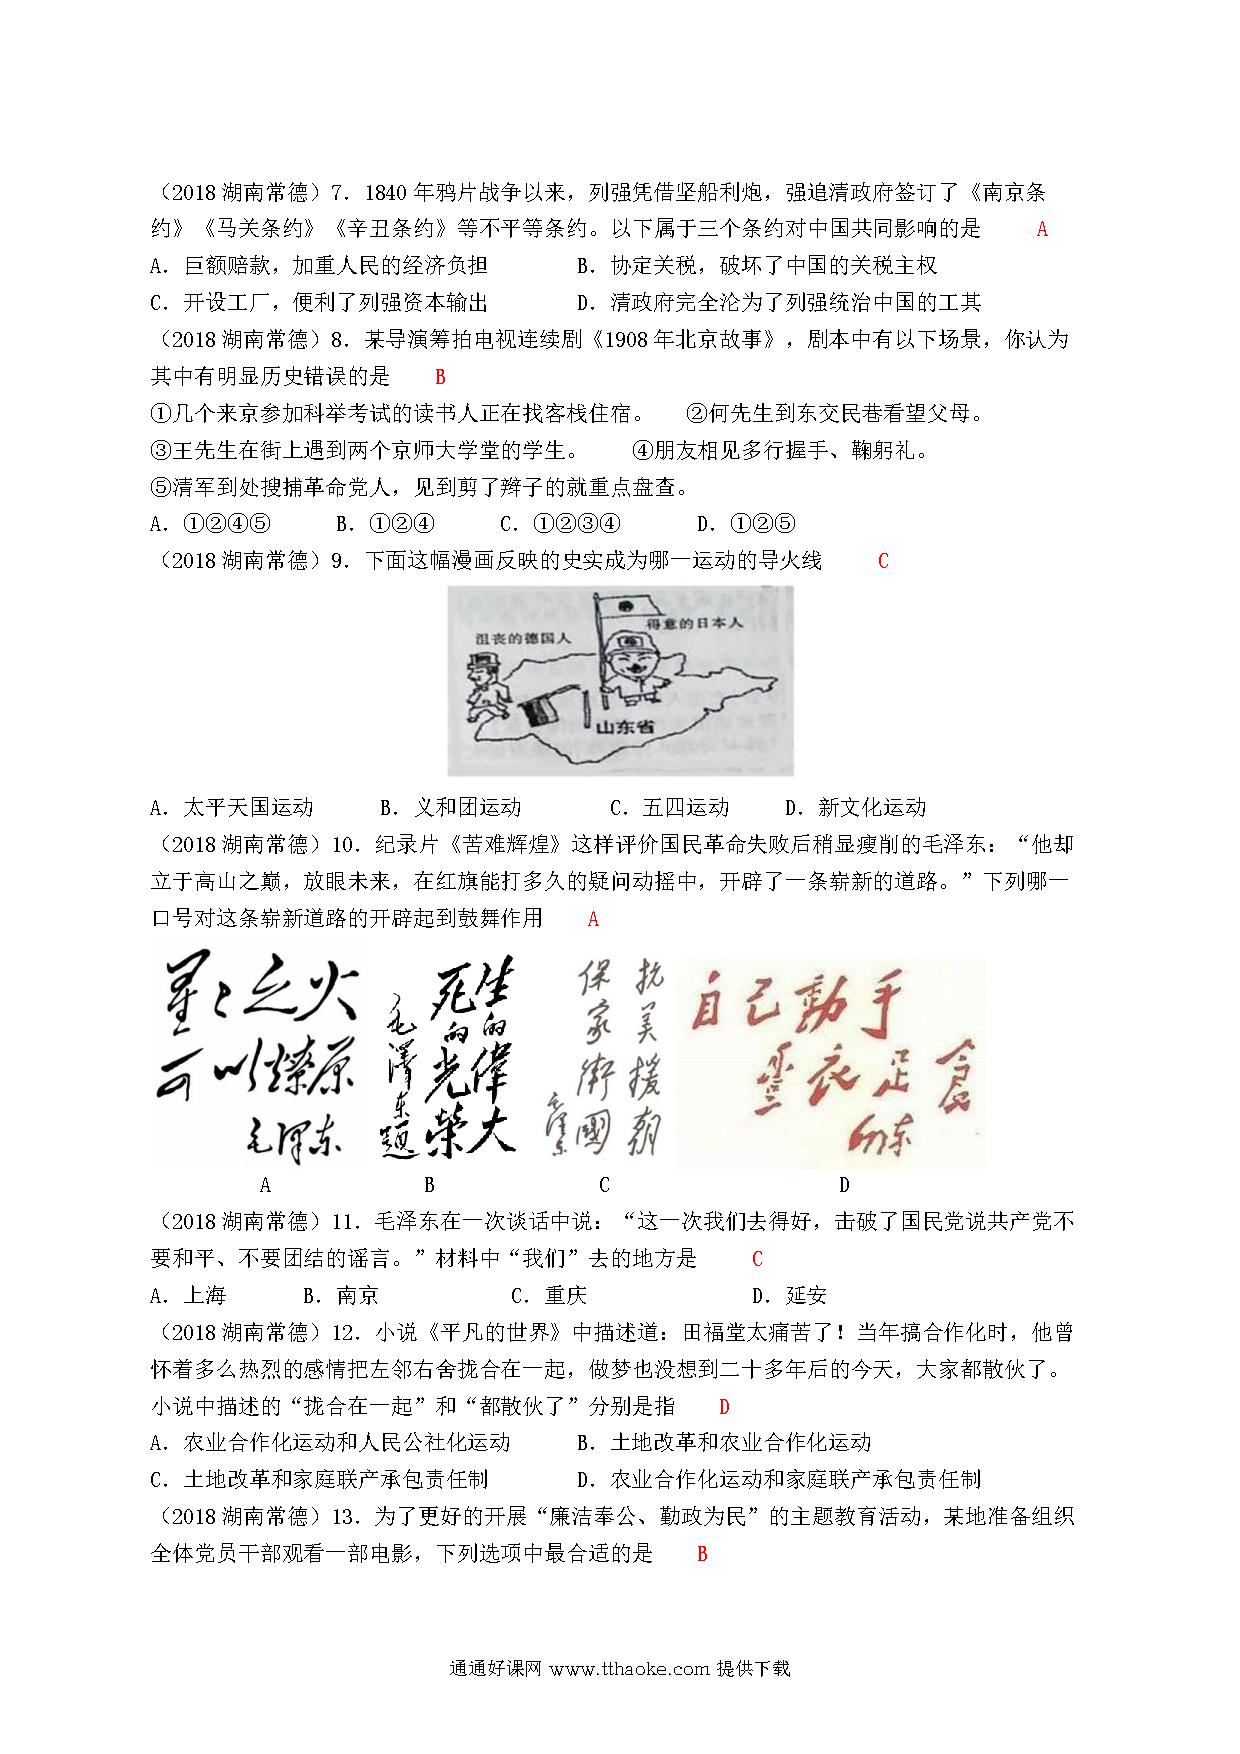 （2018 湖南常德）7．1840 年鸦片战争以来，列强凭借坚船利炮，强迫清政府签订了《南京条
约》《马关条约》《辛丑条约》等不平等条约。以下属于三个条约对中国共同影响的是 A
A．巨额赔款，加重人民的经济负担 B．协定关税，破坏了中国的关税主权
C．开设工厂，便利了列强资本输出 D．清政府完全沦为了列强统治中国的工其
（2018 湖南常德）8．某导演筹拍电视连续剧《1908 年北京故事》，剧本中有以下场景，你认为
其中有明显历史错误的是 B
①几个来京参加科举考试的读书人正在找客栈住宿。 ②何先生到东交民巷看望父母。
③王先生在街上遇到两个京师大学堂的学生。 ④朋友相见多行握手、鞠躬礼。
⑤清军到处搜捕革命党人，见到剪了辫子的就重点盘查。
A．①②④⑤ B．①②④ C．①②③④ D．①②⑤
（2018 湖南常德）9．下面这幅漫画反映的史实成为哪一运动的导火线 C
得意的日本人
沮丧的德国人
山东省
A．太平天国运动 B．义和团运动 C．五四运动 D．新文化运动
（2018 湖南常德）10．纪录片《苦难辉煌》这样评价国民革命失败后稍显瘦削的毛泽东：“他却
立于高山之巅，放眼未来，在红旗能打多久的疑问动摇中，开辟了一条崭新的道路。”下列哪一
口号对这条崭新道路的开辟起到鼓舞作用 A
星々之火
可以燎原
毛泽东
生的偉大
死的光榮
毛澤东题
抗美援朝
保家衛國
毛澤東
自己動手
豐衣足食
A B C D
（2018 湖南常德）11．毛泽东在一次谈话中说：“这一次我们去得好，击破了国民党说共产党不
要和平、不要团结的谣言。”材料中“我们”去的地方是 C
A．上海 B．南京 C．重庆 D．延安
（2018 湖南常德）12．小说《平凡的世界》中描述道：田福堂太痛苦了！当年搞合作化时，他曾
怀着多么热烈的感情把左邻右舍拢合在一起，做梦也没想到二十多年后的今天，大家都散伙了。
小说中描述的“拢合在一起”和“都散伙了”分别是指 D
A．农业合作化运动和人民公社化运动 B．土地改革和农业合作化运动
C．土地改革和家庭联产承包责任制 D．农业合作化运动和家庭联产承包责任制
（2018 湖南常德）13．为了更好的开展“廉洁奉公、勤政为民”的主题教育活动，某地准备组织
全体党员干部观看一部电影，下列选项中最合适的是 B
通通好课网 www.tthaoke.com 提供下载